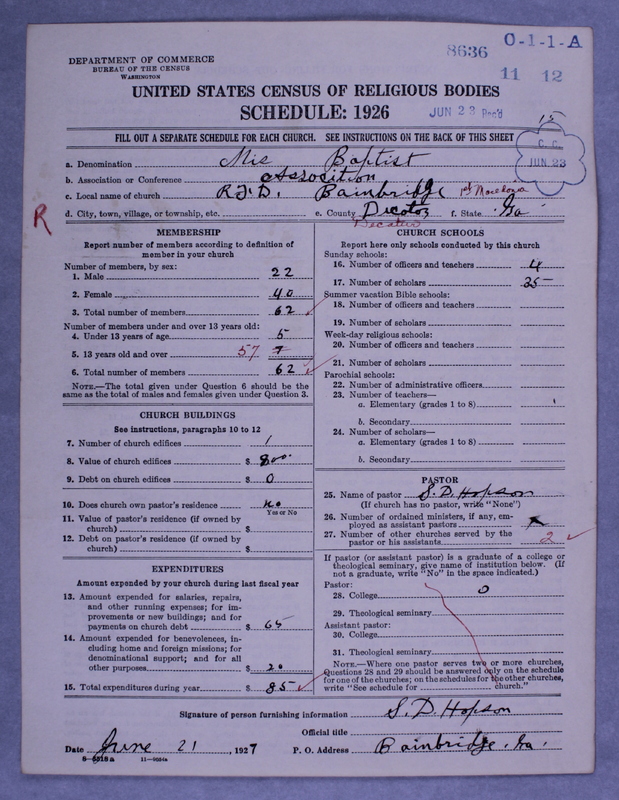 8636 0-1-1-A
11 12
DEPARTMENT OF COMMERCE
BUREAU OF THE CENSUS
WASHINGTON
UNITED STATES CENSUS OF RELIGIOUS BODIES
SCHEDULE: 1926 JUN 23 Rec'd
15
FILL OUT A SEPARATE SCHEDULE FOR EACH CHURCH. SEE INSTRUCTIONS ON THE BACK OF THIS SHEET
C. C.
JUN 23
a. Denomination Mis Baptist
b. Association or Conference Association
c. Local name of church R.F.D. Bainbridge 1st Macedonia
d. City, town, village, or township, etc. e. County Decotor f. State Ga
Decatur
R
MEMBERSHIP
Report number of members according to definition of
member in your church
Number of members, by sex:
1. Male 22
2. Female 40
3. Total number of members 62
Number of members under and over 13 years old:
4. Under 13 years of age 5
5. 13 years old and over 57 7
6. Total number of members 62
NOTE.—The total given under Question 6 should be
same as the total of males and females given under Question 3.
CHURCH BUILDINGS
See instructions, paragraphs 10 to 12
7. Number of church edifices 1
8. Value of church edifices $ 800
9. Debt on church edifices $ 0
10. Does church own pastor's residence no
Yes or No
11. Value of pastor's residence (if owned by
church) $
12. Debt on pastor's residence (if owned by
church) $
EXPENDITURES
Amount expended by your church during last fiscal year
13. Amount expended for salaries, repairs,
and other running expenses; for im-
provements or new buildings; and for
payments on church debt $ 65
14. Amount expended for benevolences, in-
cluding home and foreign missions; for
denominational support; and for all
other purposes $ 20
15. Total expenditures during year $ 85
CHURCH SCHOOLS
Report here only schools conducted by this church
Sunday schools:
16. Number of officers and teachers 4
17. Number of scholars 25
Summer vacation Bible schools:
18. Number of officers and teachers
19. Number of scholars
Week-day religious schools:
20. Number of officers and teachers
21. Number of scholars
Parochial schools:
22. Number of administrative officers
23. Number of teachers—
a. Elementary (grades 1 to 8)
b. Secondary
24. Number of scholars—
a. Elementary (grades 1 to 8)
b. Secondary
PASTOR
25. Name of pastor S. D. Hopson
(If church has no pastor, write "None")
26. Number of ordained ministers, if any, em-
ployed as assistant pastors
27. Number of other churches served by the
pastor or his assistants 2
If pastor (or assistant pastor) is a graduate of a college or
theological seminary, give name of institution below. (If
not a graduate, write "No" in the space indicated.)
Pastor:
28. College 0
29. Theological seminary
Assistant pastor:
30. College
31. Theological seminary
NOTE.—Where one pastor serves two or more churches,
Questions 28 and 29 should be answered only on the schedule
for one of the churches; on the schedules for the other churches,
write "See schedule for church."
Signature of person furnishing information S. D. Hopson
Official title
Date June 21, 1927 P. O. Address Bainbridge, Ga.
8—5518a 11—9034a